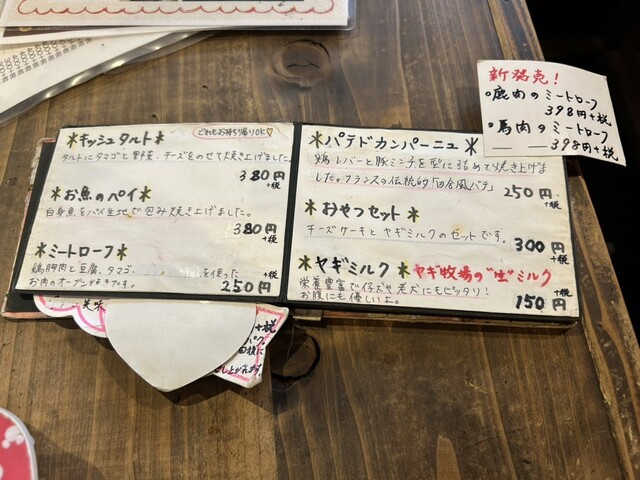 新発売!
○鹿肉のミートローフ
398円+税
○馬肉のミートローフ
398円+税
*キッシュタルト*
どれもお持ち帰りOK♡
タルトにタマゴと野菜、チーズをのせて焼き上げました。
380円
+税
*お魚のパイ*
白身魚をパイ生地で包み焼き上げました。
380円
+税
*ミートローフ*
鶏胸肉と豆腐、タマゴ、
を使った
お肉のオーブン焼きです。
250円
+税
*パテドカンパーニュ*
鶏レバーと豚ミンチを型に詰めて焼き上げま
した。フランスの伝統的「田舎風パテ」
250円
+税
*おやつセット*
チーズケーキとヤギミルクのセットです。
300円
+税
*ヤギミルク *ヤギ牧場の"生"ミルク
栄養豊富で仔犬や老犬にもピッタリ!
お腹にも優しいよ。
150円
+税
美味
+税